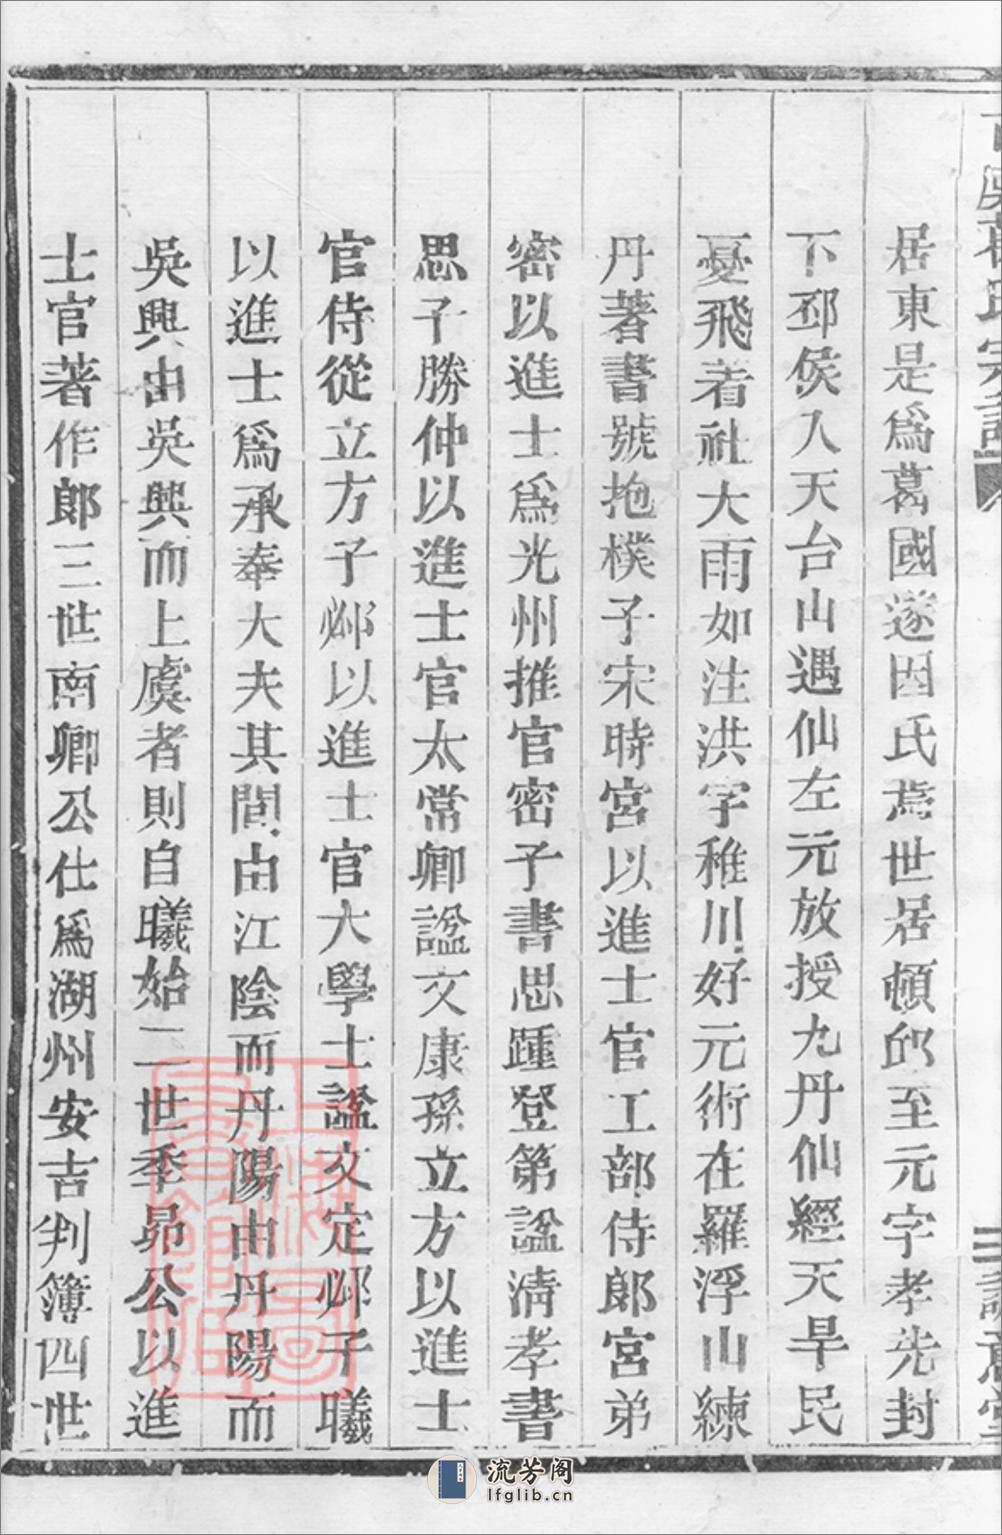 居東是爲葛國遂因氏焉世居頓邱至元字孝先封
下邳侯入天台山遇仙左元放授九丹仙經天旱民
憂飛着社大雨如注洪字稚川好元術在羅浮山練
丹著書號抱樸子宋時宮以進士官工部侍郎宮弟
密以進士爲光州推官密子書思踵登第諡淸孝書
思子勝仲以進士官太常卿諡文康孫立方以進士
官侍從立方子邲以進士官大學士諡文定邲子曦
以進士爲承奉大夫其間由江陰而丹陽由丹陽而
吳興由吳興而上虞者則自曦始二世季昴公以進
士官著作郎三世南卿公仕爲湖州安吉判簿四世
葛氏宗譜
上海圖書館藏
流芳阁
lfglib.cn